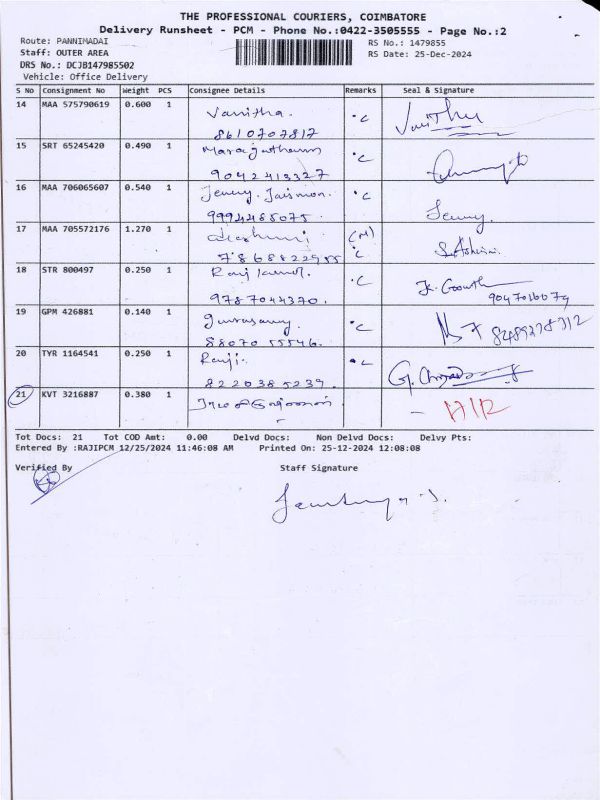 THE PROFESSIONAL COURIERS, COIMBATORE
Delivery Runsheet - PCM - Phone No.:0422-3505555 - Page No.:2
Route: PANNIMADAI
RS No.: 1479855
Staff: OUTER AREA
RS Date: 25-Dec-2024
DRS No.: DCJB147985502
Vehicle: Office Delivery
S No Consignment No Weight PCS Consignee Details Remarks Seal & Signature
14 MAA 575790619 0.600 1 Vanitha.
8610707817
15 SRT 65245420 0.490 1
9042413327
16 MAA 706065607 0.540 1 Jenny. Jaismon. Jenny.
9994485075
17 MAA 705572176 1.270 1 (M) S.Ashwini.
7868822955
18 STR 800497 0.250 1
9787044370. 9047016079
19 GPM 426881 0.140 1 Gurusamy. 8489278312
88070 55546.
20 TYR 1164541 0.250 1 Ranji.
8220385239.
21 KVT 3216887 0.380 1
Tot Docs: 21 Tot COD Amt: 0.00 Delvd Docs: Non Delvd Docs: Delvy Pts:
Entered By :RAJIPCM 12/25/2024 11:46:08 AM Printed On: 25-12-2024 12:08:08
Verified By Staff Signature